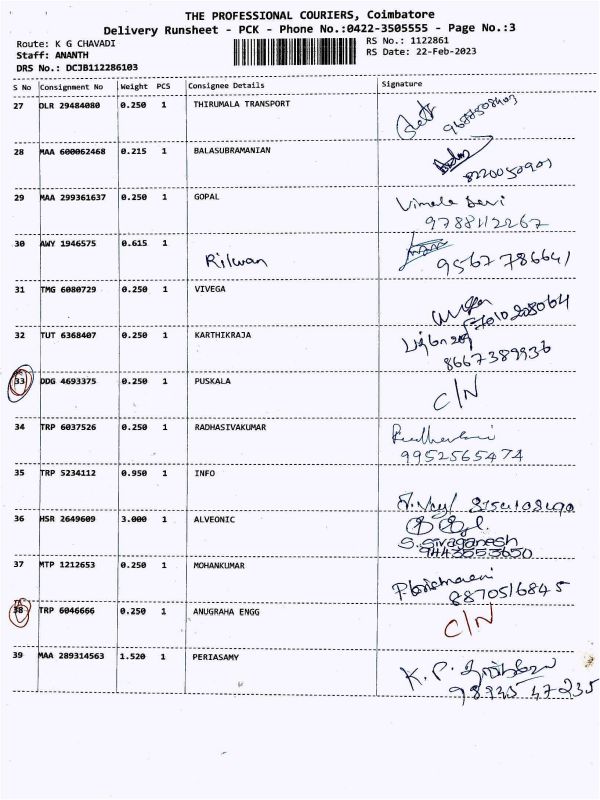 THE PROFESSIONAL COURIERS, Coimbatore
Delivery Runsheet - PCK - Phone No.:0422-3505555 - Page No.:3
Route: K G CHAVADI RS No.: 1122861
Staff: ANANTH RS Date: 22-Feb-2023
DRS No.: DCJB112286103
S No Consignment No Weight PCS Consignee Details Signature
27 DLR 29484080 0.250 1 THIRUMALA TRANSPORT
28 MAA 600062468 0.215 1 BALASUBRAMANIAN
8220050901
29 MAA 299361637 0.250 1 GOPAL Vimala Devi
9788112267
30 AWY 1946575 0.615 1
Rilwan 9562786641
31 TMG 6080729 0.250 1 VIVEGA
32 TUT 6368407 0.250 1 KARTHIKRAJA
8667389936
33 DDG 4693375 0.250 1 PUSKALA C/N
34 TRP 6037526 0.250 1 RADHASIVAKUMAR
9952565474
35 TRP 5234112 0.950 1 INFO
36 HSR 2649609 3.000 1 ALVEONIC
S. Sivaganesh
9443553650
37 MTP 1212653 0.250 1 MOHANKUMAR
8870516845
38 TRP 6046666 0.250 1 ANUGRAHA ENGG C/N
39 MAA 289314563 1.520 1 PERIASAMY K. P.
98945 47235